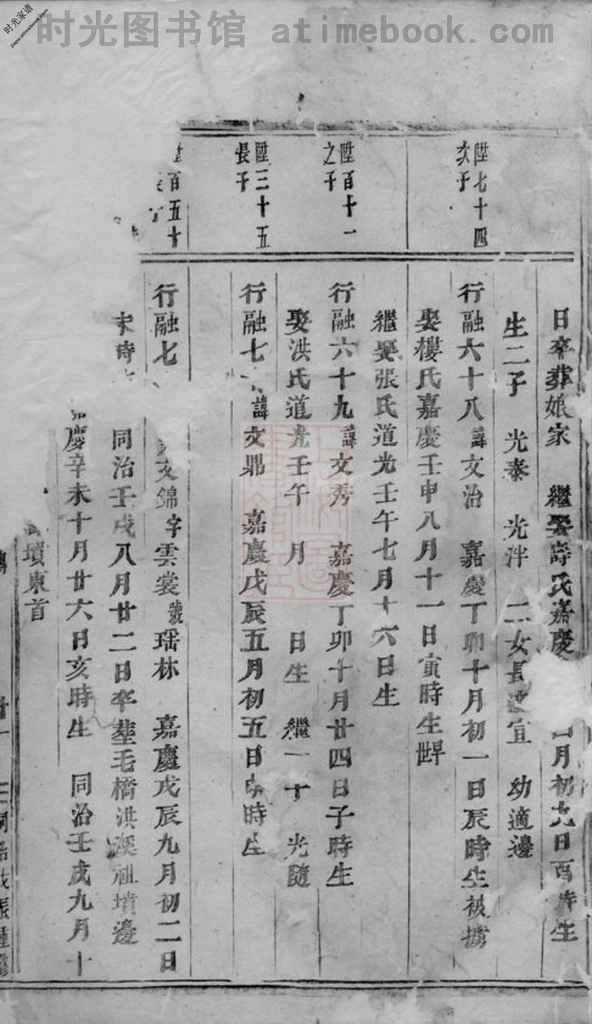 时光图书馆 atimebook.com
时光家谱
www.atimebook.com
日卒葬娘家 繼娶 氏嘉慶 月初九日酉時生
生二子 光泰 光泮 二女長適宣 幼適邊
陞七十四
次子
行融六十八諱文治 嘉慶丁卯十月初一日辰時生被擄
娶樓氏嘉慶壬申八月十一日寅時生
繼娶張氏道光壬午七月十六日生
陞百十一
之子
行融六十九諱文秀 嘉慶丁卯十月廿四日子時生
娶洪氏道光壬午 月 日生 繼一子 光隨
陞三十五
長子
行融七 諱文鼎 嘉慶戊辰五月初五日 時生
百五十
行融七 文錦字雲裳號瑶林 嘉慶戊辰九月初二日
未時 同治壬戌八月廿二日卒塟毛橋洪溪祖墳邊
慶辛未十月廿六日亥時生 同治壬戌九月十
墳東首